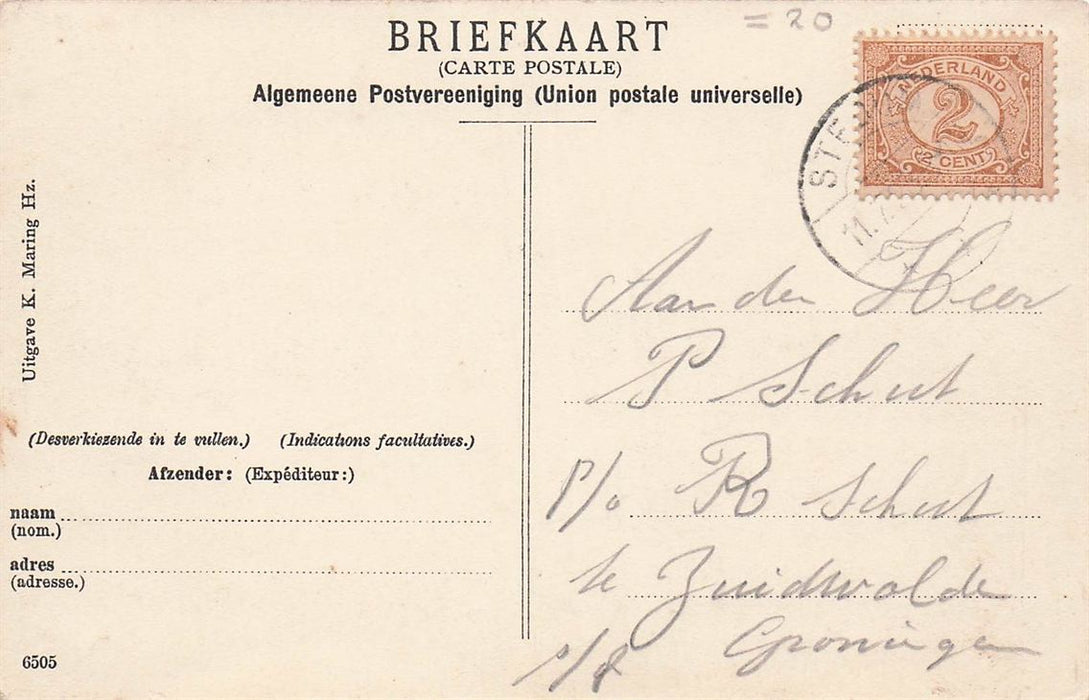 = 20
BRIEFKAART
(CARTE POSTALE)
Algemeene Postvereeniging (Union postale universelle)
NEDERLAND
2
2 CENT
11.7
Uitgave K. Maring Hz.
Aan den Heer
P Schut
p/a R Schut
te Zuidwolde
Groningen
(Desverkiezende in te vullen.) (Indications facultatives.)
Afzender: (Expéditeur:)
naam
(nom.)
adres
(adresse.)
6505